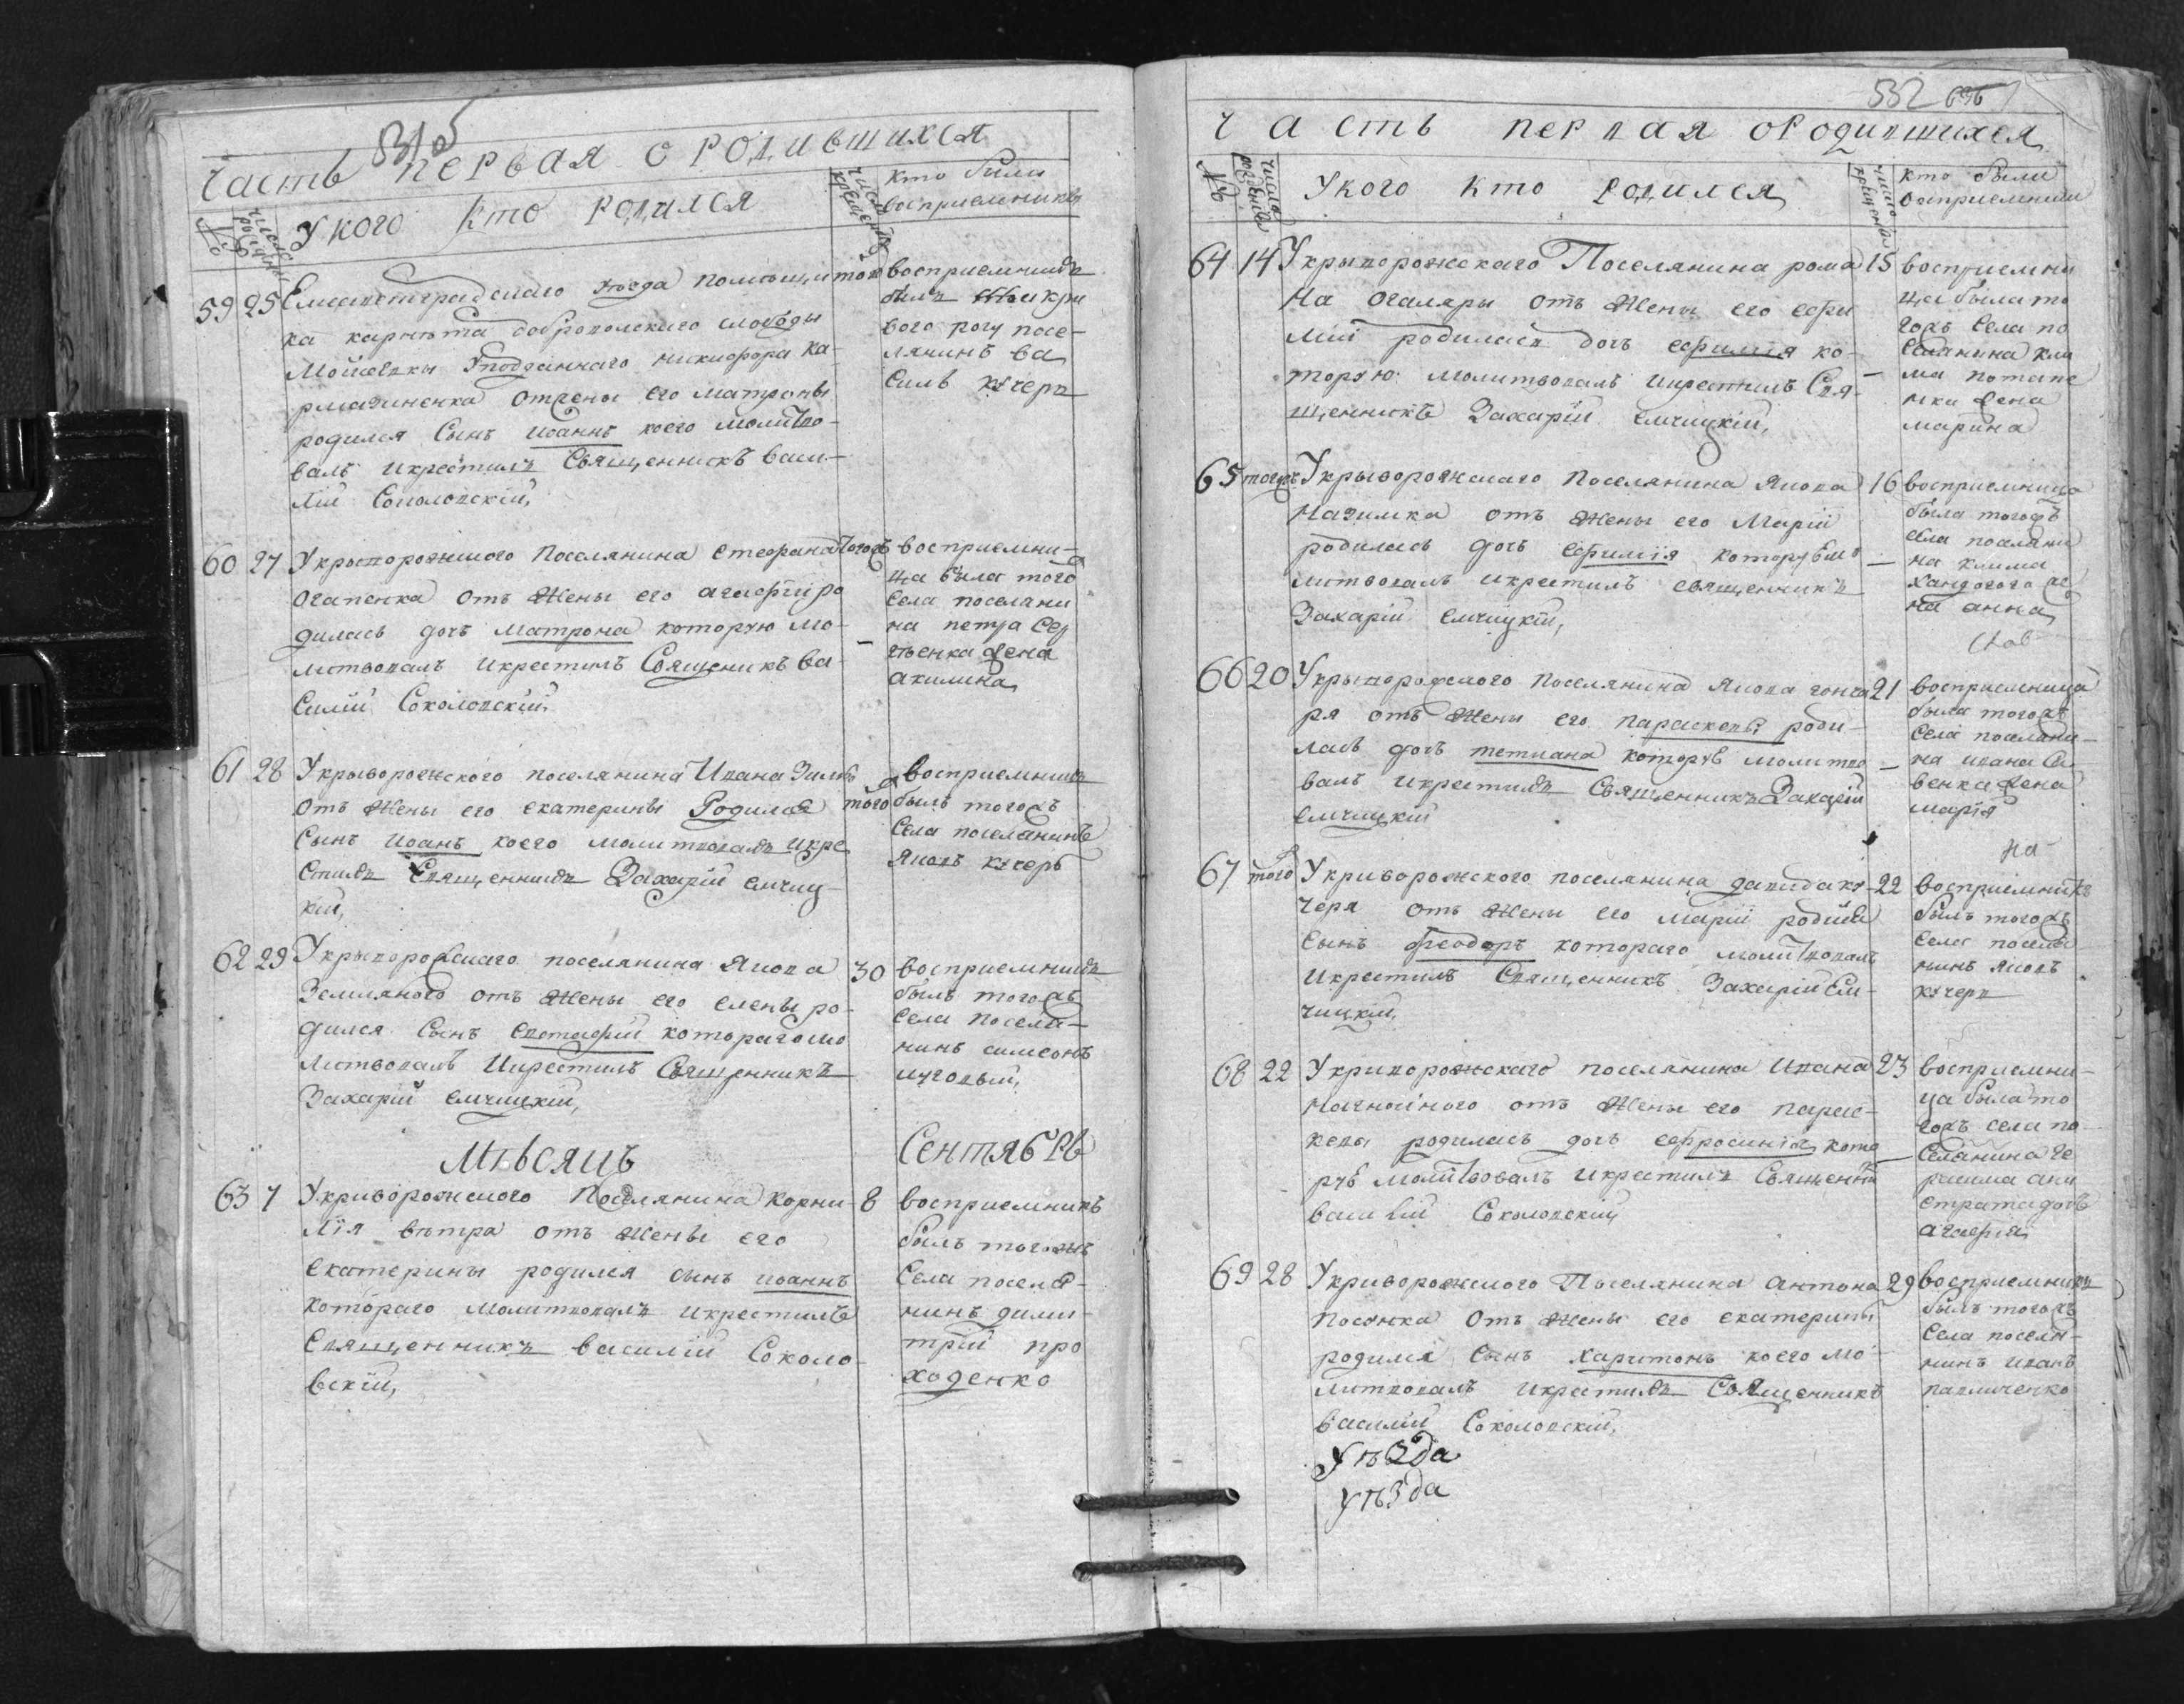 часть первая о родившихся
№
числа рождения
У кого кто родился
числа крещения
кто были
восприемники
59 25 Елисаветградскаго уезда помѣщи
ка карнета доброволского слободы
Мойсевки У подданнаго никифора ка-
рмазиненка отжены его матроны
родился Сынъ иоаннъ коего молитво-
валъ икрестилъ Священникъ васи-
лій Соколовскій,
того восприемникъ
былъ кри
вого рогу посе-
лянинъ ва
силъ кучеръ
60 27 Укриворожского поселянина стефана
Огапенка отъ жены его агафіи ро
дилась дочъ матрона которую мо-
литвовалъ икрестилъ Священикъ ва-
силій Соколовскій
тогожъ восприемни-
ца была того
села поселяни
на петра сер
гѣенка жена
акилина
61 28 Укрыворожского поселянина Ивана
отъ жены его екатерины Родился
Сынъ иоанъ коего молитвовалъ икре
стилъ Священникъ Захарій емчиц-
кій,
того восприемникъ
былъ тогожъ
Села поселянинъ
Яковъ кучеръ
62 29 Укрыворожскаго поселянина Якова
Земляного отъ жены его елены ро-
дился Сынъ Евстафий котораго мо
литвовалъ Икрестилъ Священникъ
Захарій емчицкій,
30 восприемникъ
былъ тогожъ
Села поселя-
нинъ симеонъ
луговый,
Мѣсяцъ Сентябрь
63 7 Укриворожского Поселянина корни-
лія вѣтра отъ жены его
екатерины родился сынъ иоаннъ
котораго молитвовалъ икрестилъ
Священникъ василій Соколо-
вскій,
8 восприемникъ
былъ тогожъ
Села поселя-
нинъ дими-
трій про
ходенко
532 696
часть первая ородившихся
№
числа рождения
Укого кто родился
число крещения
кто были
восприемники
64 14 Укрыворожскаго Поселянина рома
на огаляры отъ жены его ефи
міи родилася дочъ ефимія ко-
торую молитвовалъ икрестилъ Свя-
щенникъ Захарій емчицкій,
15 восприемни
ца была то
гожъ Села по
селянина кли
ма потапе
нка жена
марина
65 тогожъ Укрыворожскаго Поселянина Якова
Назимка отъ жены его Марій
родилась дочъ ефимія которую мо
литвовалъ икрестилъ священникъ
Захарій емчицкій,
16 восприемница
была тогожъ
села поселяни
на клима
хандогого же
на анна
66 20 Укрыворожского поселянина Якова гонча
ря отъ жены его параскевы роди-
лась дочъ тетиана которую молитво
валъ икрестилъ Священникъ Захарій
емчицкій
21 восприемница
была тогожъ
села поселяни-
на ивана са
венка жена
марія
67 того Укриворожского поселянина давида ку-
черя отъ жены его маріи родился
сынъ феодоръ котораго молитвовалъ
икрестилъ Священникъ Захарій Ем-
чицкій,
22 восприемникъ
былъ тогожъ
села поселя
нинъ яковъ
кучеръ
68 22 Укриворожскаго поселянина Ивана
Нагнойного отъ жены его парас-
кевы родилась дочъ ефросинія кото
рую молитвовалъ икрестилъ Священни
василій Соколовскій
23 восприемни-
ца была то
гожъ села по-
селянина ге
расима
страта дочъ
агафія
69 28 Укриворожского Поселянина антона
Посунка отъ жены его екатерины
родился Сынъ харитонъ коего мо-
литвовалъ икрестилъ Священникъ
василій Соколовскій,
29 восприемникъ
былъ тогожъ
села поселя-
нинъ иванъ
павличенко
уѣзда
уѣзда